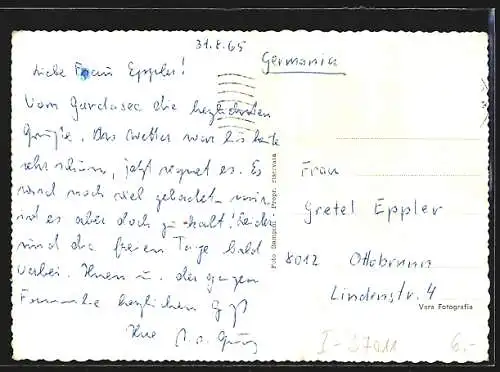 31.8.65
Germania
Liebe Frau Eppler!
Vom Gardasee die herzlichsten
Grüße. Das Wetter war bis heute
sehr schön, jetzt regnet es. Es
wird noch viel gebadet, mir
ist es aber doch zu kalt! Leider
sind die freien Tage bald
vorbei. Ihnen u. der ganzen
Familie herzlichen
Ihre
Foto
Frau
Gretel Eppler
8012 Ottobrunn
Lindenstr. 4
Vera Fotografia
I-37011
6.-